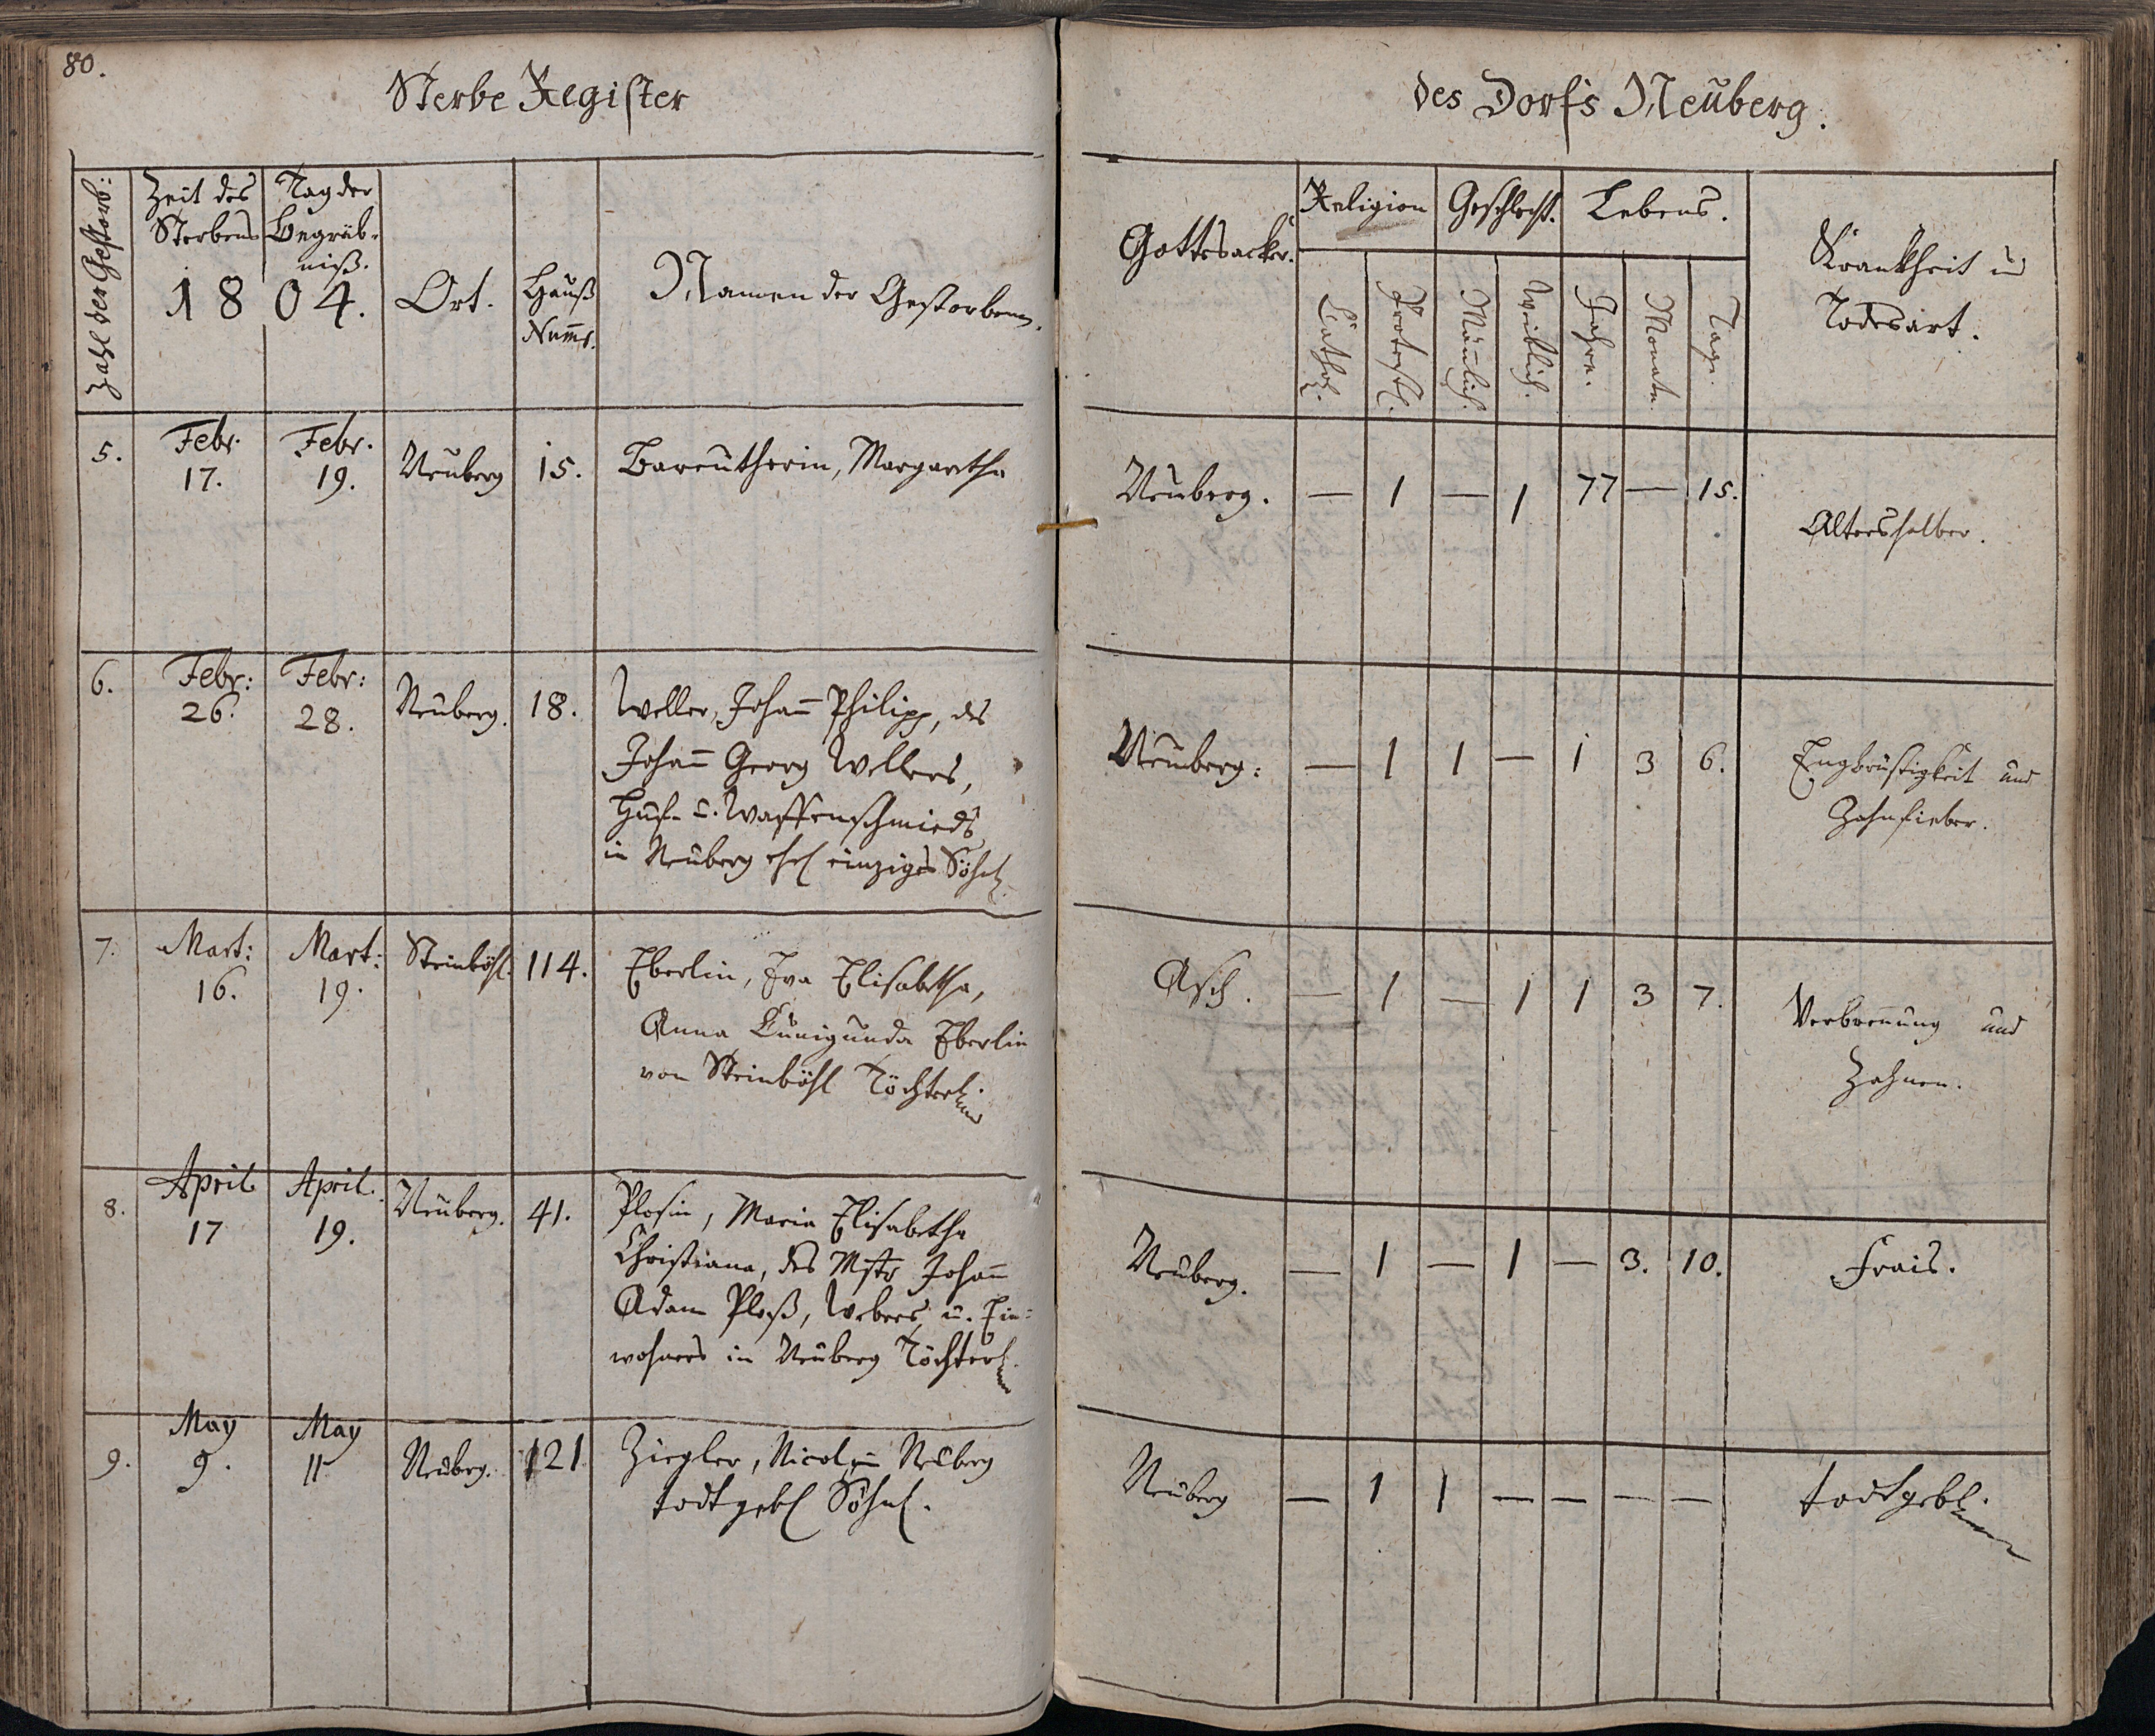 80.
Sterbe Register
des Dorfs Neuberg.
Zahl der Gestorb:
Zeit des Sterbens
Tag der Begräb-
niß.
1804.
Ort.
Hauß
Num̄r.
Namen der Gestorbenen.
Gottesacker.
Religion
Geschlecht.
Lebens.
Krankheit u
Todesart.
Cathol.
Protestl.
Mänlich.
Weiblich.
Jahre.
Monate.
Tage.
5.
Febr.
17.
Febr.
19.
Neuberg
15.
Bareutherin, Margaretha
Neuberg. — 1 — 1 77 — 15.
Altershalber.
6.
Febr:
26.
Febr:
28.
Neuberg.
18.
Weller, Johan̄ Philipp, des
Johan̄ Georg Wellers,
Huf- u. Waffenschmieds
in Neuberg ehel einziges Söhnl.
Neuberg: — 1 1 — 1 3 6.
Engbrüstigkeit und
Zahnfieber.
7.
Mart:
16.
Mart:
19.
Steinböhl.
114.
Eberlin, Eva Elisabetha,
Anna Cunigunda Eberlin
von Steinböhl Töchterl.
Asch. — 1 — 1 1 3 7.
Verbrennung und
Zahnen.
8.
April
17
April.
19.
Neuberg.
41.
Plosin, Maria Elisabetha
Christiana, des Mstr Johan̄
Adam Ploß, Webers u. Ein-
wohners in Neuberg Töchterl.
Neuberg. — 1 — 1 — 3. 10.
Frais.
9.
May
9.
May
11
Neuberg.
121
Ziegler, Nicol, in Neuberg
todtgebl Söhnl.
Neuberg — 1 1 — — — —
todtgebl.